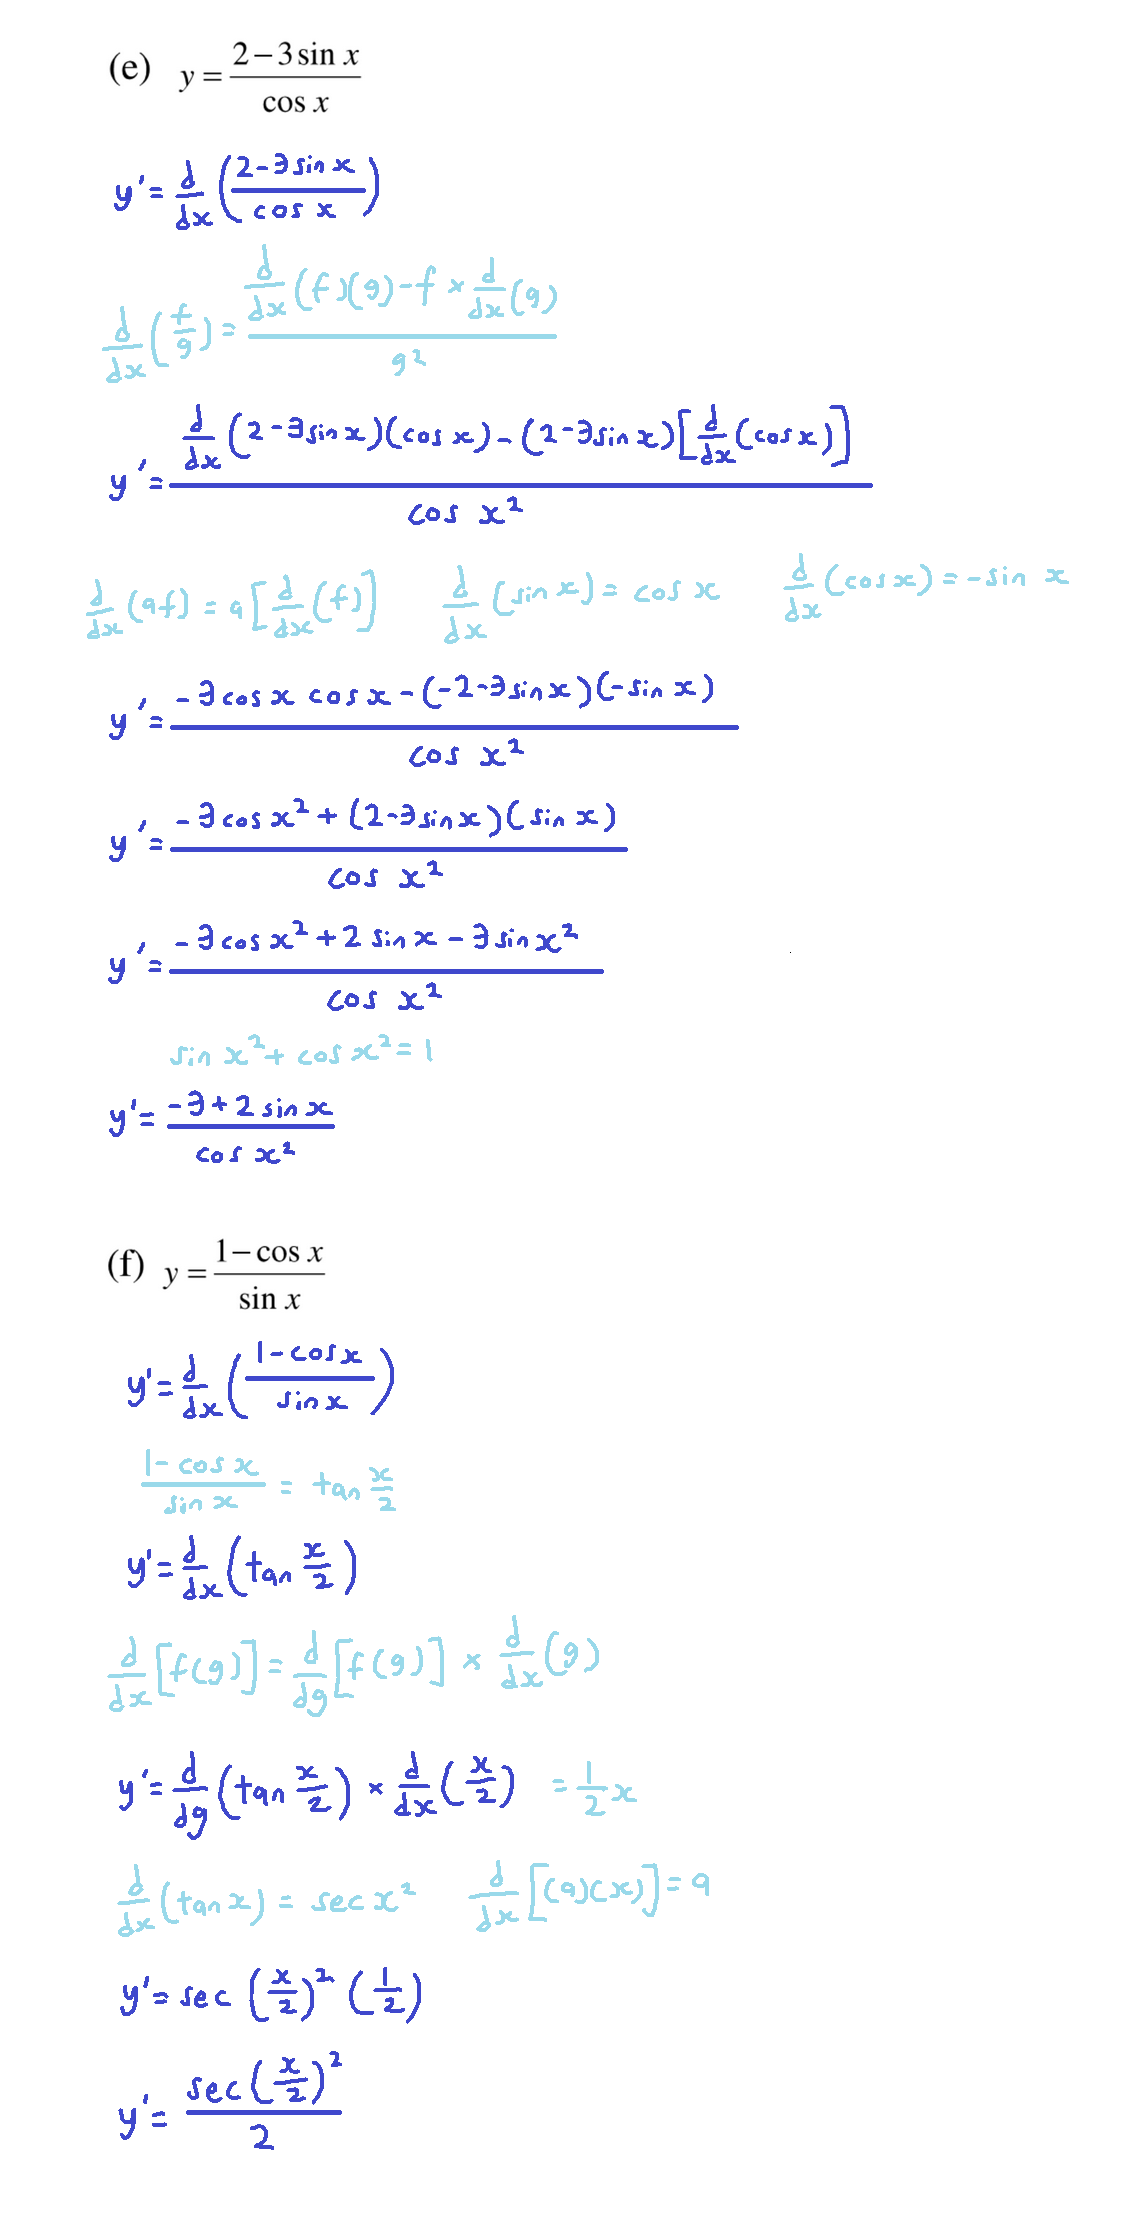 (e) y = (2 − 3 sin x)/(cos x)
y' = d/dx ((2 - 3 sin x)/(cos x))
d/dx (f/g) = (d/dx (f)(g) - f × d/dx (g))/(g²)
y' = (d/dx (2 - 3 sin x)(cos x) - (2 - 3 sin x)[d/dx (cos x)])/(cos x²)
d/dx (af) = a[d/dx (f)] d/dx (sin x) = cos x d/dx (cos x) = -sin x
y' = (-3 cos x cos x - (-2 - 3 sin x)(-sin x))/(cos x²)
y' = (-3 cos x² + (2 - 3 sin x)(sin x))/(cos x²)
y' = (-3 cos x² + 2 sin x - 3 sin x²)/(cos x²)
sin x² + cos x² = 1
y' = (-3 + 2 sin x)/(cos x²)
(f) y = (1 − cos x)/(sin x)
y' = d/dx ((1 - cos x)/(sin x))
(1 - cos x)/(sin x) = tan x/2
y' = d/dx (tan x/2)
d/dx [f(g)] = d/dg [f(g)] × d/dx (g)
y' = d/dg (tan x/2) × d/dx (x/2) = 1/2 x
d/dx (tan x) = sec x² d/dx [(a)(x)] = a
y' = sec (x/2)² (1/2)
y' = (sec (x/2)²)/2